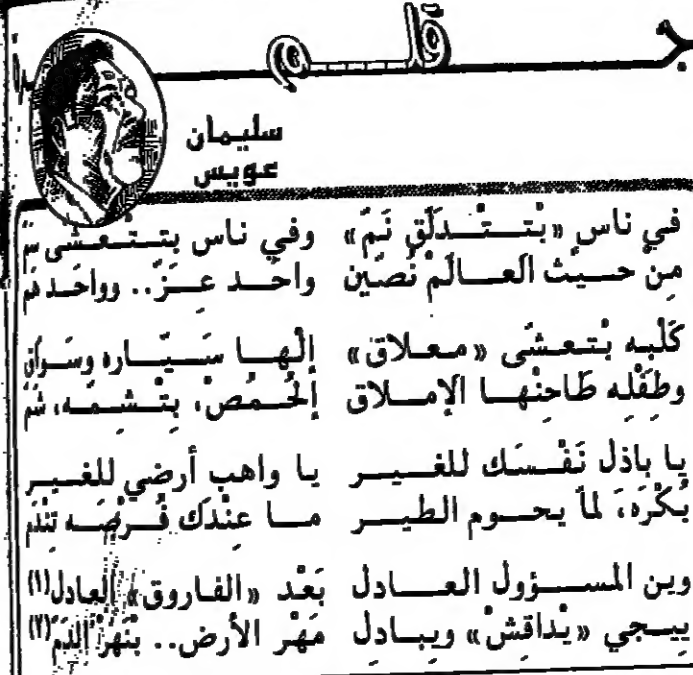 قلم
سليمان
عويس
في ناس «بْتتْدلّق نَمّ» وفي ناس بتتْعشّى سَمّ
مِنْ حيثْ العالَمْ نُصّين واحَد عزّ.. وواحَد هَم
كَلْبه بْتتعشّى «معلاق» إلْها سيّاره وسَواق
وطفْله طَاحنْها الإملاق إلْحُمّصْ، بِتْشمّه، شَمّ
يا باذل نَفْسَك للغير يا واهب أرضي للغير
بُكْرَه، لماّ يحوم الطير ما عنْدَك فُرْصَه تِنْدَم
وين المسؤول العادل بَعْد «الفاروق» العادل(١)
ييجي «يْداقِشْ» ويبادل مَهْر الأرض.. بْنَهرْ الدَم(٢)